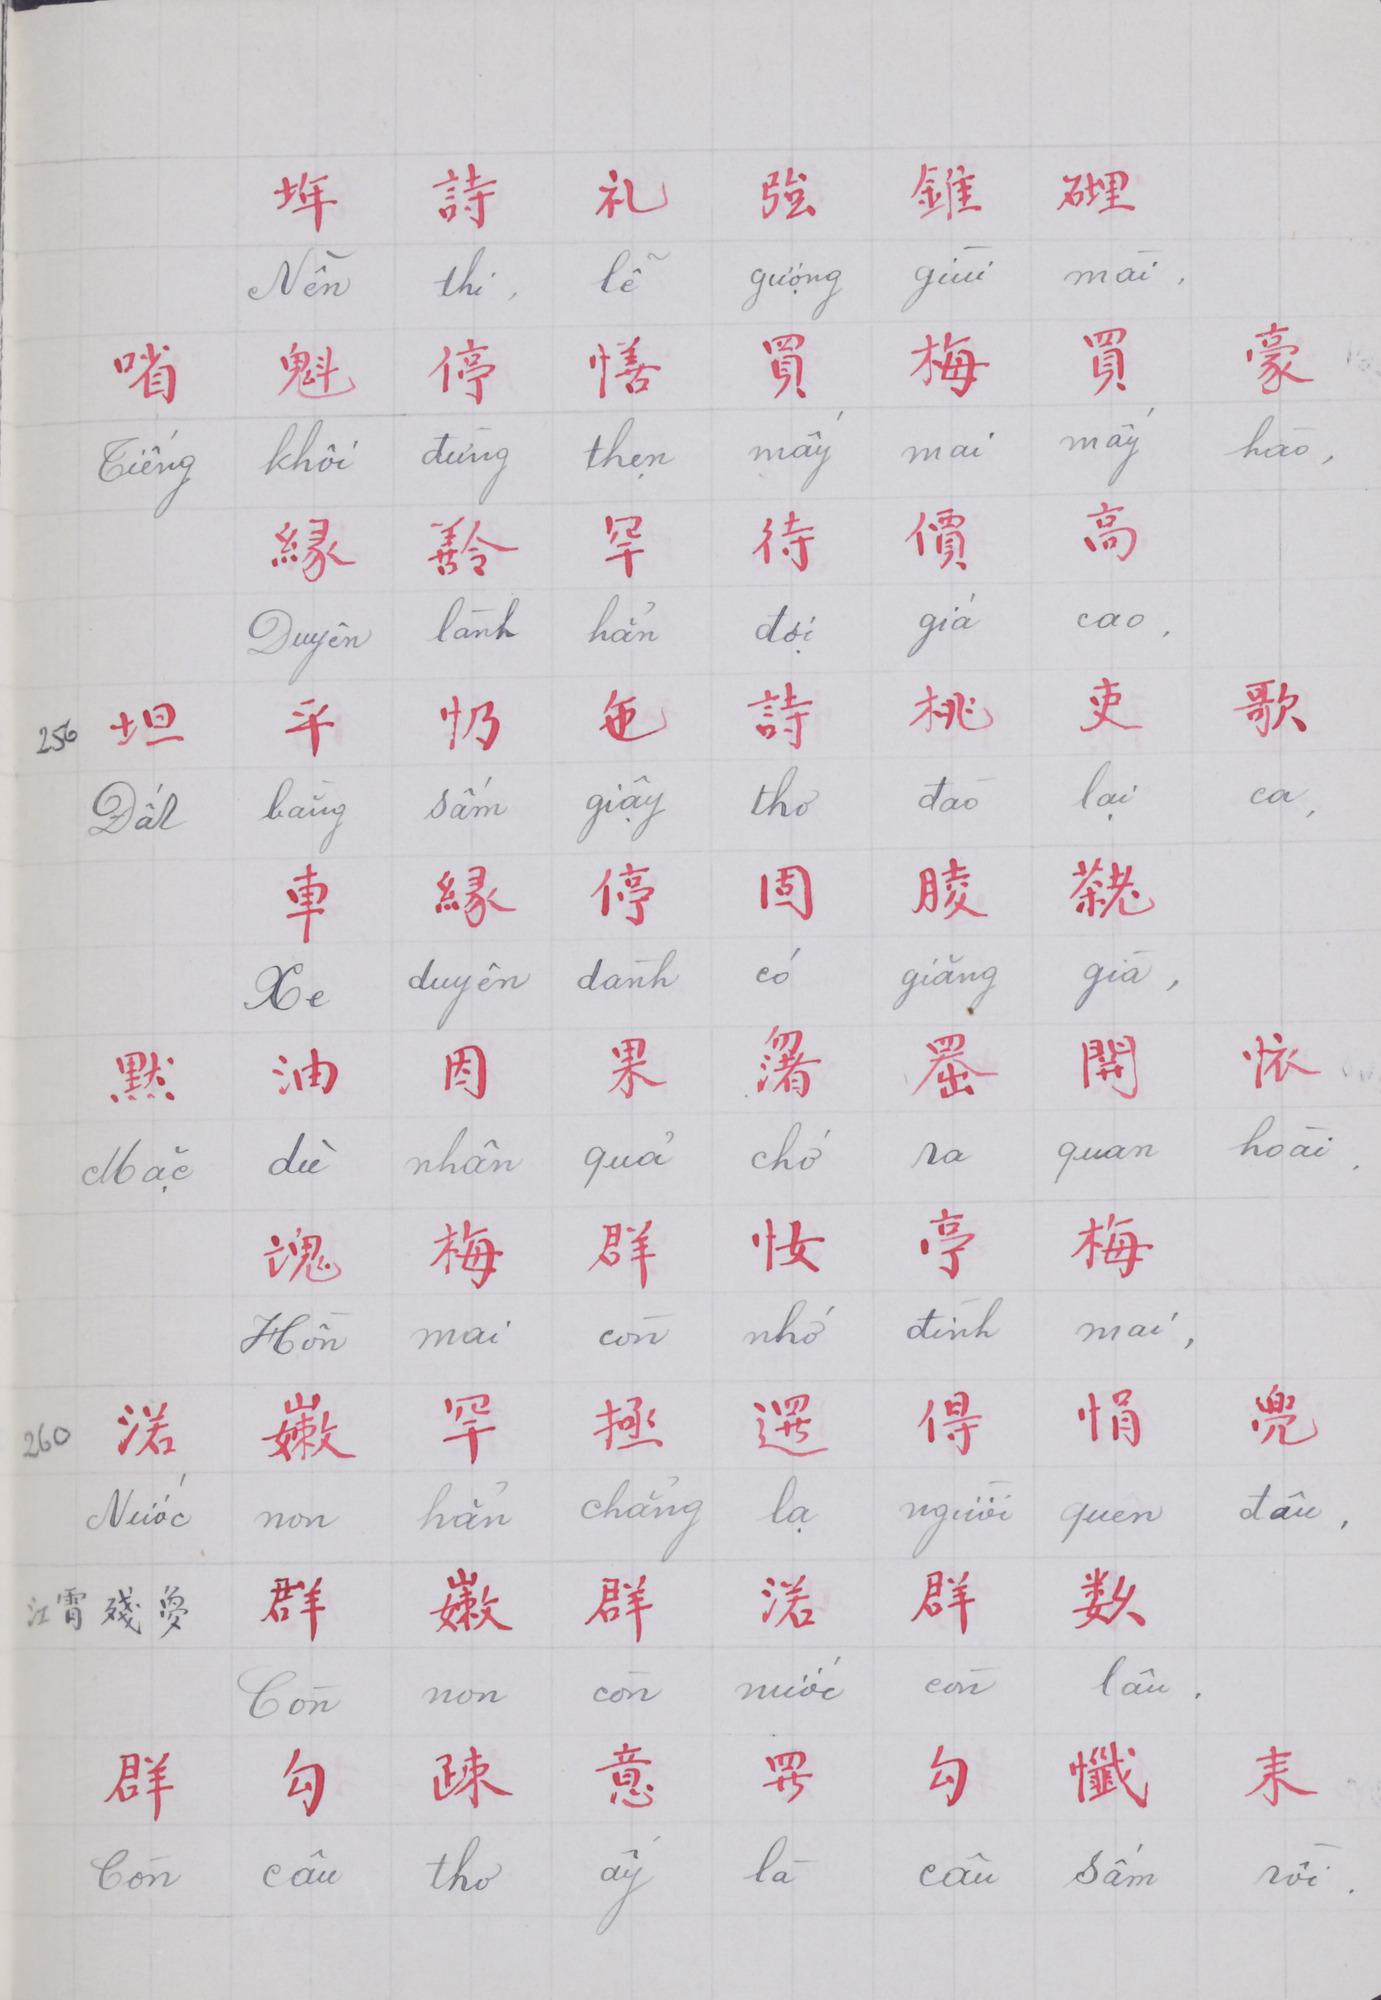 詩 礼 強 錐
Nền thi, lễ gượng giùi mài,
哨 魁 停 𢢆 買 梅 買 豪
Tiếng khôi đừng thẹn mấy mai mấy hào,
緣 罕 待 價 高
Duyên lành hẳn đợi giá cao,
256 坦 平 忉 詩 桃 吏 歌
Đất bằng sấm giậy thơ đào lại ca,
車 緣 停 固 𦝄
Xe duyên dành có giăng già,
默 油 因 果 𠚢 関 怀
Mặc dù nhân quả chớ ra quan hoài,
魂 梅 群 𢖵 亭 梅
Hồn mai còn nhớ đình mai,
260 渃 𡽫 罕 拯 𨔍 得 悁 兜
Nước non hẳn chẳng lạ người quen đâu,
江 霄 殘 夢 群 𡽫 群 渃 群 数
Còn non còn nước còn lâu,
群 勾 疎 意 𱺵 勾 懺 耒
Còn câu thơ ấy là câu sấm rồi.